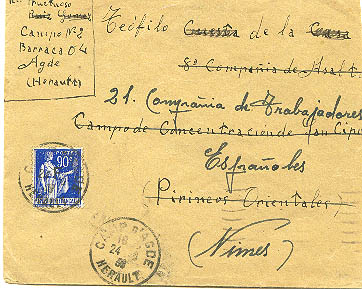 Fructuoso
Ruiz
Campo Nº 2
Barraca 04
Agde
(Herault)
Teófilo Cuesta de la Casa
8º Compañia de Asalt
21. Compañia de Trabajadores
Campo de Concentración de San Cipr
Españoles
(Pirineos Orientales)
(Nimes)
POSTES
90
CAMP D'AGDE
24
HERAULT